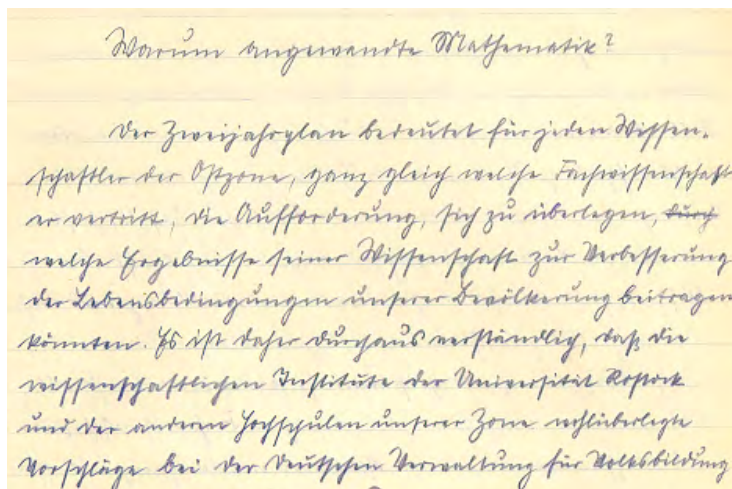 Warum angewandte Mathematik?
Der Zweijahrplan bedeutet für jeden Wissen-
schaftler der Ostzone, ganz gleich welche Fachwissenschaft
er vertritt, die Aufforderung, sich zu überlegen, durch
welche Ergebnisse seiner Wissenschaft zur Verbesserung
der Lebensbedingungen unserer Bevölkerung beitragen
könnten. Es ist daher durchaus verständlich, daß die
wissenschaftlichen Institute der Universität Rostock
und der anderen Hochschulen unserer Zone wohlüberlegte
Vorschläge bei der Deutschen Verwaltung für Volksbildung